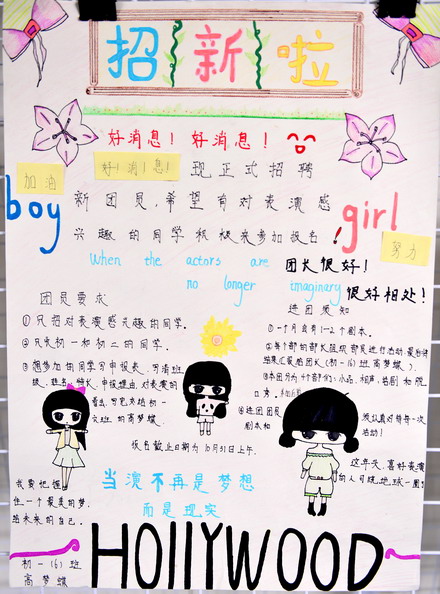 招新啦
好消息！好消息！
好！消！息！
现正式招聘
加油
boy
新团员,希望有对表演感
girl
兴趣的同学积极来参加报名！
努力
When the actors are
no longer imaginary
团长很好！
很好相处！
团员要求
①只招对表演感兴趣的同学。
②只招初一和初二的同学。
③想参加的同学写申报表,写清班
级、姓名、特长、申报理由,对表演的
看法,写完交给初一
六班的高梦蝶。
报名截止日期为10月31日上午。
进团须知
①一个月会有1-2个剧本。
②每个部的部长组织部员进行活动,最后将
结果汇报给团长(初一(6)班高梦蝶)。
③本团分为4个部门:小品、相声、话剧和
④进团团员
剧本和
须认真对待每一次
活动！
这年天,喜好表演
的人可绕地球一圈了
当演不再是梦想
而是现实
我要把握
住一个最美的梦,
给未来的自己。
HOllYWOOD
初一(6)班
高梦蝶